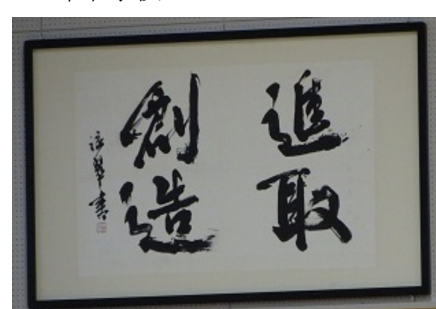 進取
創造